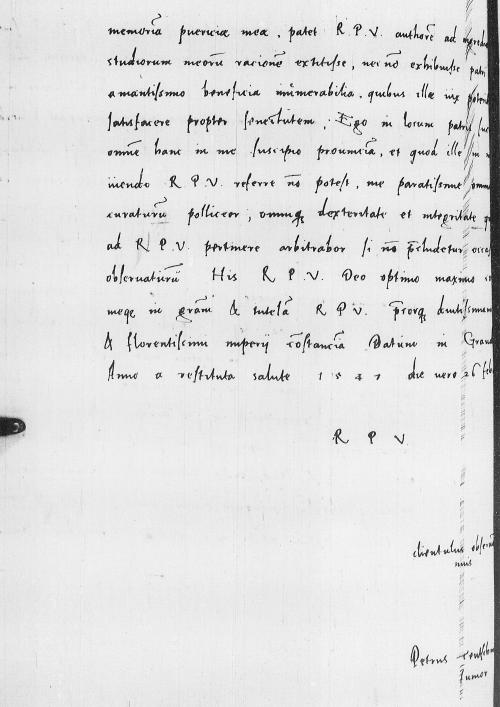 memoriā puericiæ meæ, patet R. P. V. authorē ad
studiorum meorū racionē extitisse, nec nō exhibuisse patri
amantissimo beneficia innumerabilia, quibus ille vix
satisfacere propter senectutem, Ego in locum patris
omnē hanc in me suscipio prouinciā, et quod ille in
R. P. V. referre nō potest, me paratissime
curaturū polliceor, omniaq dexteritate et integritate
ad R. P. V. pertinere arbitrabor si nō p̄cludetur
obseruaturū His R. P. V. Deo optimo maximo
meqe in grām & tutelā R. P. V.
& florentissimi imperij cōstanciā Datum in
Anno a restituta salute 1547 die vero 26 feb
R P V
clientulus
Petrus
Junior